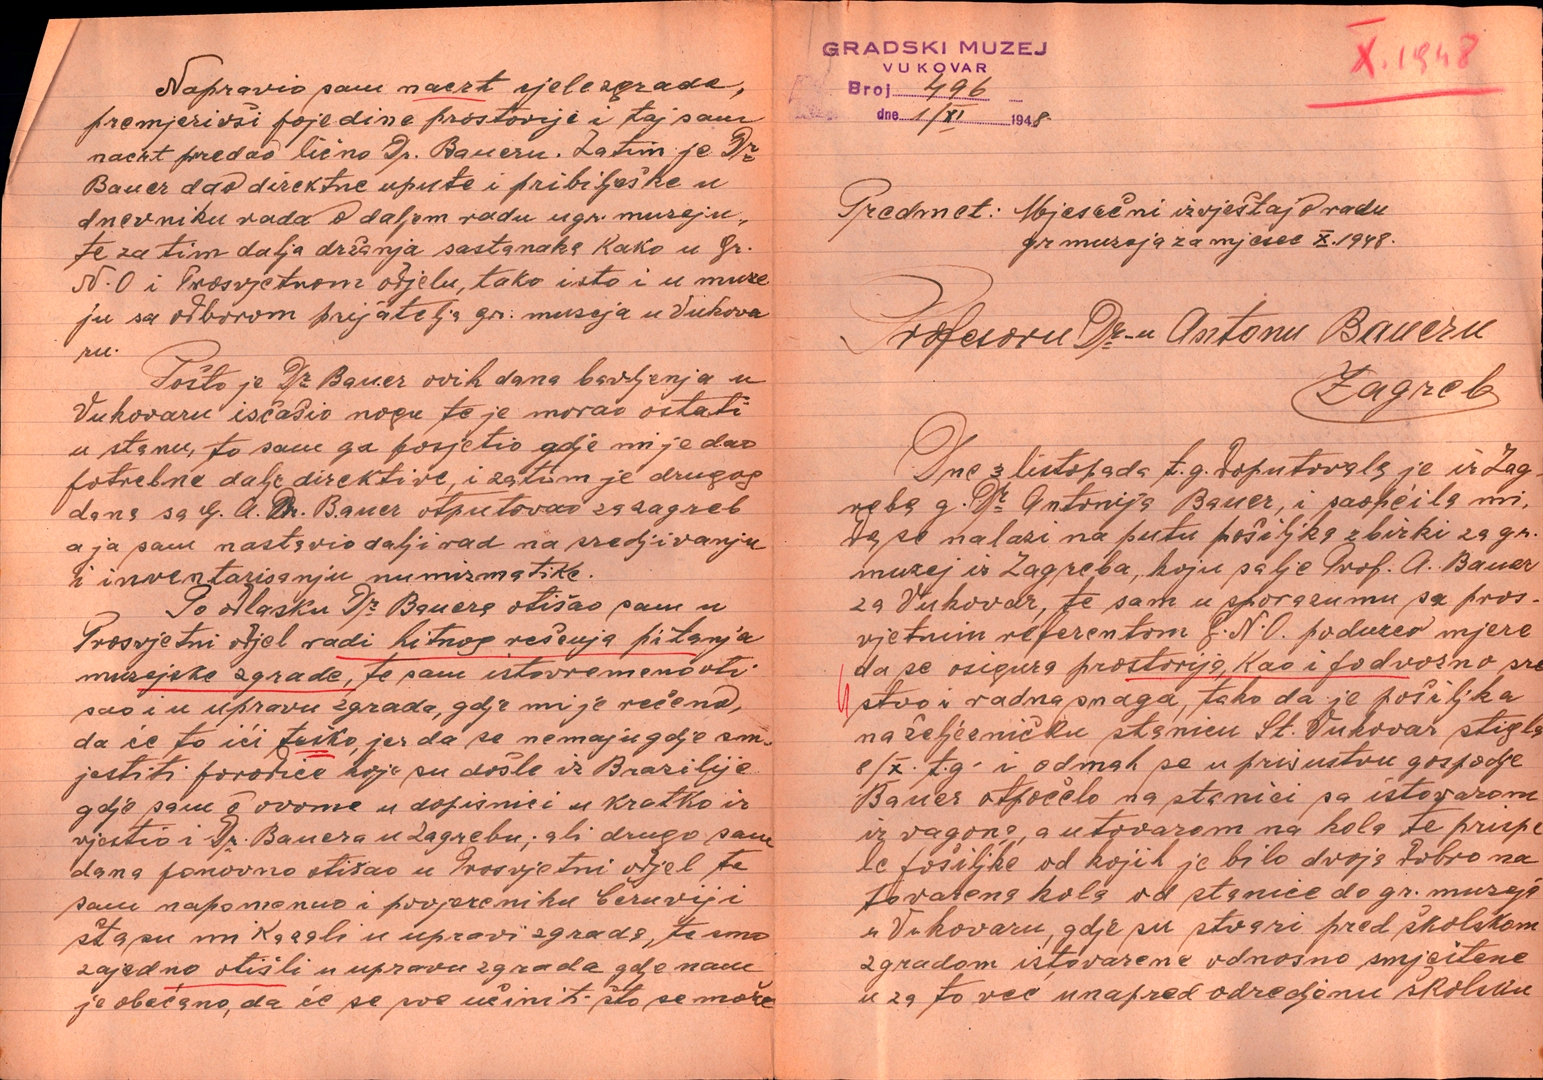 Napravio sam nacrt cjele zgrade,
premjerivši pojedine prostorije i taj sam
nacrt predao lično Dr. Baueru. Zatim je Dr
Bauer dao direktne upute i pribilješke u
dnevniku rada o daljem radu u gr. muzeju,
te za tim dalja držanja sastanaka kako u Gr.
N.O i Prosvjetnom odjelu, tako isto i u muze
ju sa odborom prijatelja gr. muzeja u Vukova
ru.
Pošto je Dr Bauer ovih dana bavljenja u
Vukovaru isčašio nogu te je morao ostati
u stanu, to sam ga posjetio gdje mi je dao
potrebne dalje direktive, i zatim je drugog
dana sa G. A. Dr. Bauer otputovao za zagreb
a ja sam nastavio dalji rad na sredjivanju
i inventarisanju numizmatike.
Po odlasku Dr Bauera otišao sam u
Prosvjetni odjel radi hitnog rešenja pitanja
muzejske zgrade, te sam istovremeno oti-
šao i u upravu zgrada, gdje mi je rečeno,
da će to ići teško, jer da se nemaju gdje sm-
jestiti porodice koje su došle iz Brazilije
gdje sam o ovome u dopisnici u kratko iz
vjestio i Dr. Bauera u Zagrebu; ali drugo sam
dana ponovno otišao u Prosvjetni odjel te
sam napomenuo i povjereniku Ceruviji i
šta su mi kazali u upravi zgrada, te smo
zajedno otišli u upravu zgrada gdje nam
je obećano, da će se sve učiniti što se može
GRADSKI MUZEJ
VUKOVAR
Broj 496
dne 1/XI 1948
X. 1948
Predmet: Mjesečni izvještaj o radu
gr muzeja za mjesec X. 1948.
Profesoru Dr-u Antonu Baueru
Zagreb
Dne 2 listopada t.g. doputovala je iz Zag-
reba g. Dr Antonija Bauer, i saopćila mi,
da se nalazi na putu pošiljka zbirki za gr.
muzej iz Zagreba, koju šalje Prof. A. Bauer
za Vukovar, te sam u sporazumu sa pros-
vjetnim referentom G.N.O. poduzeo mjere
da se osigura prostorija, kao i podvozno sre
stvo i radna snaga, tako da je pošiljka
na željezničku stanicu St. Vukovar stigla
/X. t.g. i odmah se u prisustvu gospodje
Bauer otpočelo na stanici sa istovarom
iz vagona, a utovarom na kola te prispe
le pošiljke od kojih je bilo dvoja dobro na
tovarena kola od stanice do gr. muzeja
u Vukovaru, gdje su stvari pred školskom
zgradom istovarene odnosno smještene
u za to već unapred odredjenu školsku